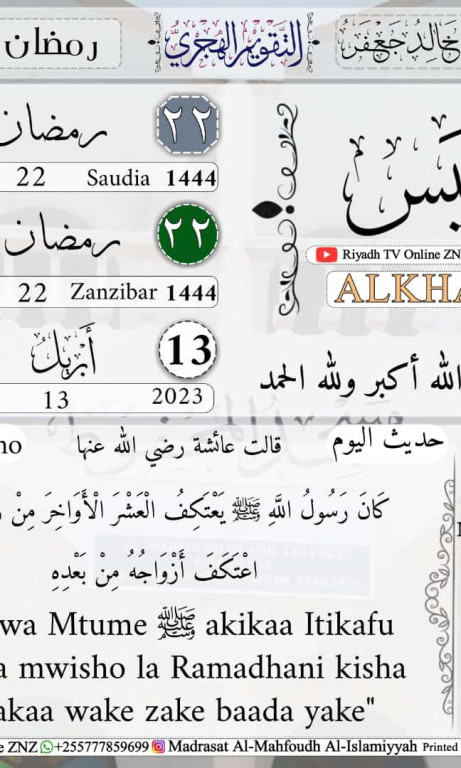 خالد جعفر
التقويم الهجري
رمضان
رمضان ٢٢
22 Saudia 1444
رمضان ٢٢
22 Zanzibar 1444
أبريل 13
13 2023
Riyadh TV Online ZN
ALKHA
الله أكبر ولله الحمد
حديث اليوم
قالت عائشة رضي الله عنها
كَانَ رَسُولُ اللَّهِ ﷺ يَعْتَكِفُ الْعَشْرَ الْأَوَاخِرَ مِنْ
اعْتَكَفَ أَزْوَاجُهُ مِنْ بَعْدِهِ
wa Mtume ﷺ akikaa Itikafu
a mwisho la Ramadhani kisha
akaa wake zake baada yake"
e ZNZ +255777859699 Madrasat Al-Mahfoudh Al-Islamiyyah Printed